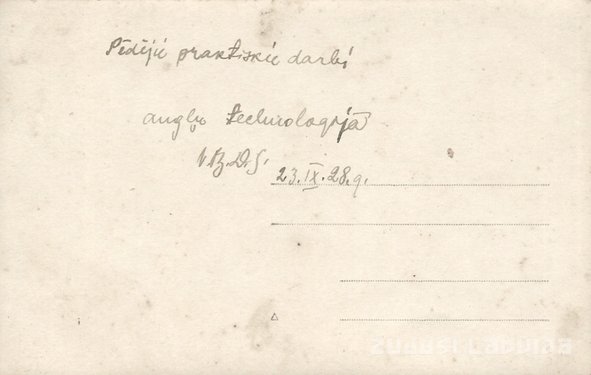 Pēdējie praktiskie darbi
augļu technoloģijā
V.B.D.S.
23.IX.28.g.
Zudusī Latvija